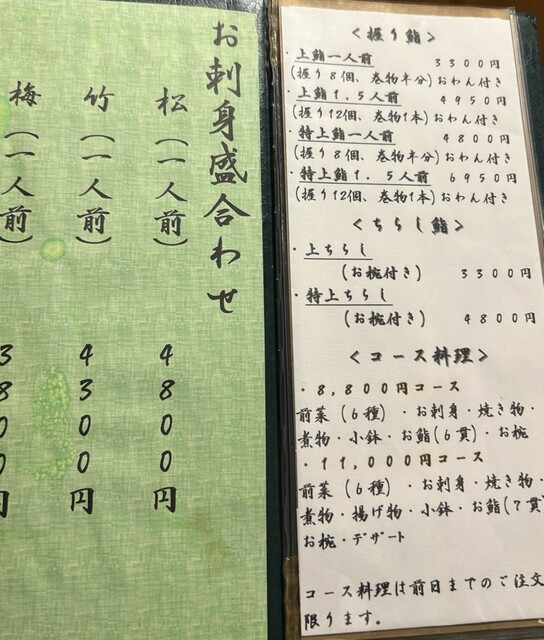 お刺身盛合わせ
松（一人前）4800円
竹（一人前）4300円
梅（一人前）3800円
＜握り鮨＞
・上鮨一人前 3300円
(握り8個、巻物半分)おわん付き
・上鮨1.5人前 4950円
(握り12個、巻物1本)おわん付き
・特上鮨一人前 4800円
(握り8個、巻物半分)おわん付き
・特上鮨1.5人前 6950円
(握り12個、巻物1本)おわん付き
＜ちらし鮨＞
・上ちらし
(お椀付き) 3300円
・特上ちらし
(お椀付き) 4800円
＜コース料理＞
・8,800円コース
前菜(6種)・お刺身・焼き物・
煮物・小鉢・お鮨(6貫)・お椀
・11,000円コース
前菜(6種)・お刺身・焼き物・
煮物・揚げ物・小鉢・お鮨(7貫)
お椀・デザート
コース料理は前日までのご注文
限ります。